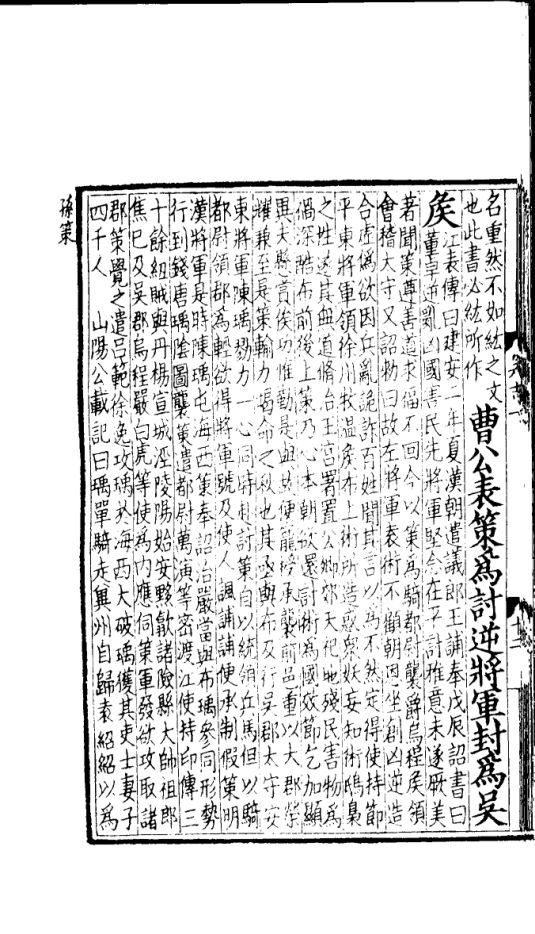 名重然不如紘之文
也此書必紘所作
曹公表策爲討逆將軍封爲吳
侯
江表傳曰建安二年夏漢朝遣議郎王誧奉戊辰詔書曰
董卓逆亂凶國害民先將軍堅念在平討雅意未遂厥美
著聞策遵善道求福不回今以策爲騎都尉襲爵烏程侯領
會稽大守又詔勑曰故左將軍袁術不顧朝恩坐創凶逆造
合虛僞欲因兵亂詭詐百姓聞其言以爲不然定得使持節
平東將軍領徐州牧温侯布上術所造惑衆妖妄知術鴟梟
之性遂其無道脩治王宮署置公卿郊天祀地殘民害物爲
禍深酷布前後上策乃心本朝欲還討術爲國效節乞加顯
異夫懸賞俟功惟勤是與故便寵授承襲前邑重以大郡榮
耀兼至是策輸力竭命之秋也其亟與布及行吳郡太守安
東將軍陳瑀勠力一心同時赴討策自以統領兵馬但以騎
都尉領郡爲輕欲得將軍號及使人諷誧誧便承制假策明
漢將軍是時陳瑀屯海西策奉詔治嚴當與布瑀參同形勢
行到錢唐瑀陰圖襲策遣都尉萬演等密渡江使持印傳三
十餘紐賊與丹楊宣城涇陵陽始安黟歙諸險縣大帥祖郎
焦已及吳郡烏程嚴白虎等使爲內應伺策軍發欲攻取諸
郡策覺之遣呂範徐逸攻瑀於海西大破瑀獲其吏士妻子
四千人 山陽公載記曰瑀單騎走冀州自歸袁紹紹以爲
孫策